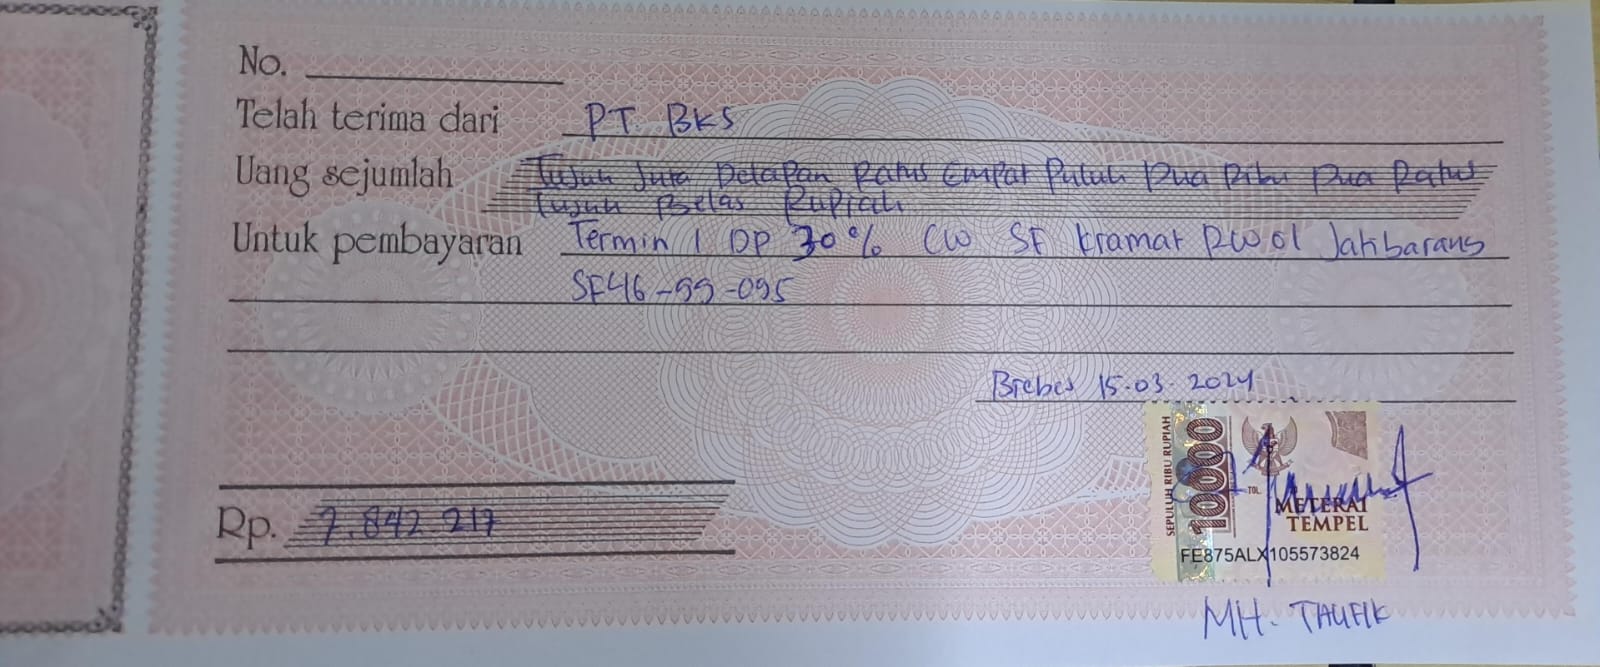 No.
Telah terima dari PT. BKS
Uang sejumlah Tujuh Juta Delapan Ratus Empat Puluh Dua Ribu Dua Ratus
Tujuh Belas Rupiah
Untuk pembayaran Termin 1 DP 30% CW SF Kramat RW 01 Jatibarang
SF46-99-095
Brebes 15.03.2024
SEPULUH RIBU RUPIAH
10000
TGL.
METERAI
TEMPEL
FE875ALX105573824
Rp. 7.842.217
MH. TAUFIK